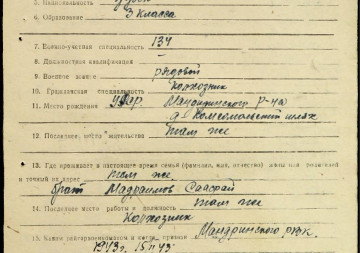 5. Национальность узбек
6. Образование 3 класса
7. Военно-учетная специальность 134
8. Должностная квалификация —
9. Военное звание рядовой
10. Гражданская специальность колхозник
11. Место рождения р-на
Комсомольский
12. Последнее место жительства там же
13. Где проживает в настоящее время семья (фамилия, имя, отчество) жены или родителей
и точный их адрес там же
брат Мадраимов
14. Последнее место работы и должность там же
Колхозник
15. Каким райвоенкоматом и когда призван рвк.
1943г. 15/I 43